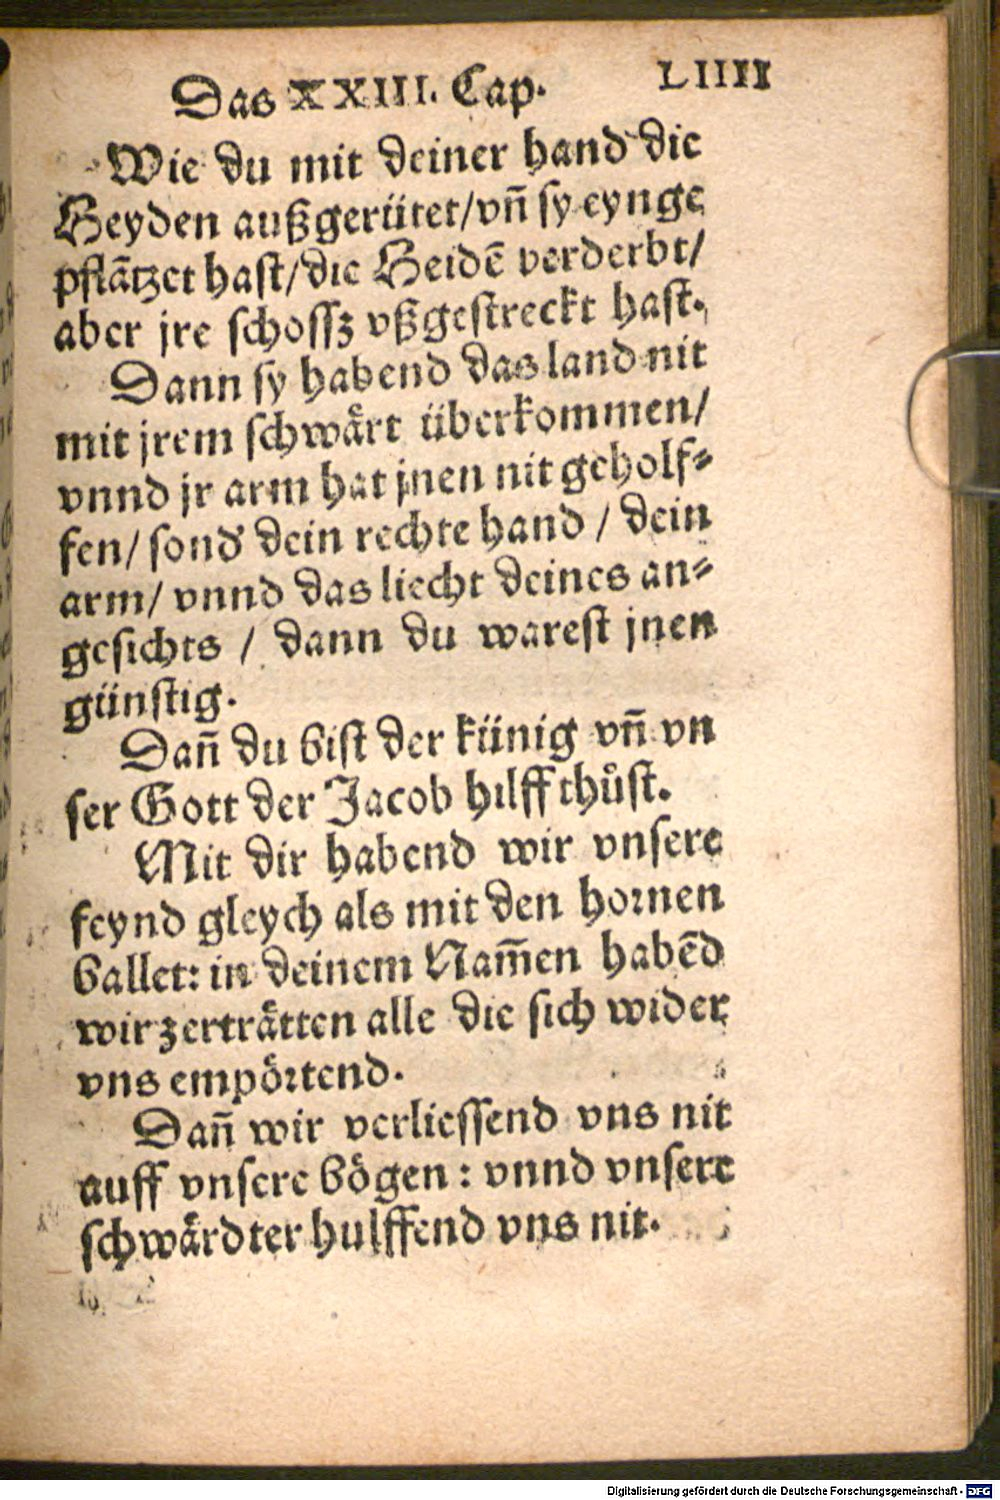 Das XXIII. Cap. LIIII
Wie du mit deiner hand die
Heyden außgerütet/vñ sy eynge
pflãtzet hast/die Heidẽ verderbt/
aber jre schossz vßgestreckt hast.
Dann sy habend das land nit
mit jrem schwårt überkommen/
vnnd jr arm hat jnen nit geholf⸗
fen/ sond' dein rechte hand / dein
arm/ vnnd das liecht deines an⸗
gesichts / dann du warest jnen
günstig.
Dañ du bist der künig vñ vn
ser Gott der Jacob hilff thůst.
Mit dir habend wir vnsere
feynd gleych als mit den hornen
ballet: in deinem Nam̃en habẽd
wir zerträtten alle die sich wider
vns empörtend.
Dañ wir verliessend vns nit
auff vnsere bögen: vnnd vnsere
schwärdter hulffend vns nit.
Digitalisierung gefördert durch die Deutsche Forschungsgemeinschaft - DFG